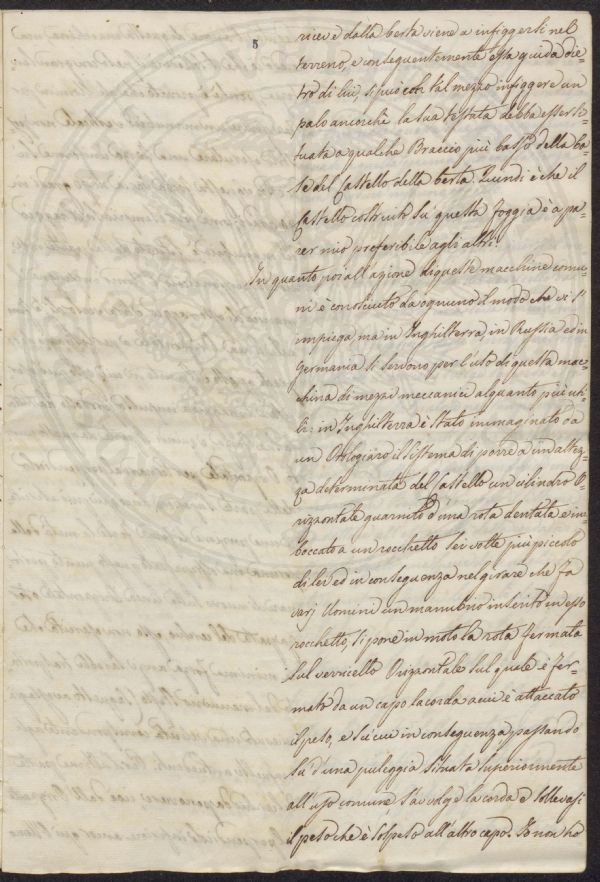 5
riceve dalla berta viene a infiggersi nel
terreno, e conseguentemente essa guida die=
tro di lui, si può con tal mezzo infiggere un
palo ancorchè la sua testata debba essere si=
tuata a qualche Braccio più basso della ba=
se del Castello della berta. Quindi è che il
Castello costruito su questa foggia è a pa=
rer mio preferibile agli altri.
In quanto poi all'azione di queste macchine comu=
ni è conosciuto da ognuno il modo che vi s'
impiega, ma in Inghilterra, in Russia ed in
Germania si servono per l'uso di questa mac=
china di mezzi meccanici alquanto più uti=
li: in Inghilterra è stato immaginato da
un Orologiaro il sistema di porre a un'altez=
za determinata del Castello un cilindro O=
rizzontale guarnito d'una rota dentata e im=
boccato a un rocchetto sei volte più piccolo
di lei ed in conseguenza nel girare che fa
varj Uomini un manubrio inserito in esso
rocchetto, si pone in moto la rota fermata
sul verricello Orizzontale sul quale è fer=
mata da un capo la corda a cui è attaccato
il peso, e si cui in conseguenza passando
su d'una puleggia situata superiormente
all'uso comune s'avvolge la corda e sollevasi
il peso che è sospeso all'altro capo. Io non ho